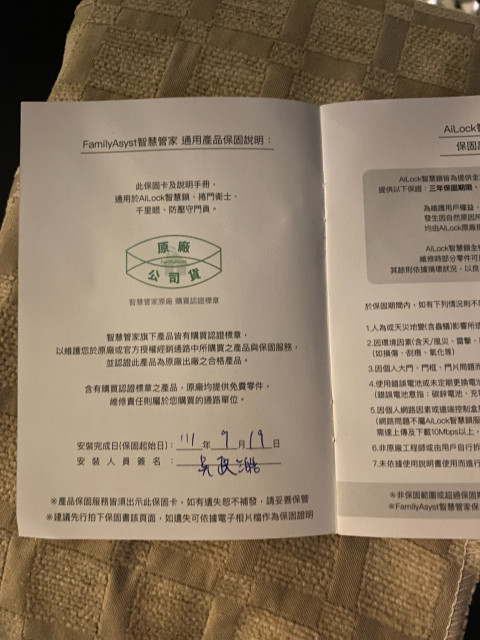 FamilyAsyst智慧管家 通用產品保固說明：
此保固卡及說明手冊，
適用於AiLock智慧鎖、捲門衛士、
千里眼、防壓守門員。
原廠
公司貨
智慧管家原廠 購買認證標章
智慧管家旗下產品皆有購買認證標章，
以維護您於原廠或官方授權經銷通路中所購買之產品與保固服務，
並認證此產品為原廠出廠之合格產品。
含有購買認證標章之產品，原廠均提供免費零件，
維修責任則屬於您購買的通路單位。
安裝完成日(保固起始日)：111年9月19日
安裝人員簽名：吳政
※產品保固服務皆須出示此保固卡，如有遺失恕不補發，請妥善保管
※建議先行拍下保固書該頁面，如遺失可依據電子相片檔作為保固證明
AiLock
保固
AiLock智慧鎖皆為提供全
提供以下保證：三年保固期限，
為維護用戶權益，
發生因自然原因所
均由AiLock原廠
AiLock智慧鎖全
維修時部分零件可
其餘則依據損壞狀況，以良
於保固期間內，如有下列情況則不
1.人為或天災地變(含蟲蟻)影響所
2.因環境因素(含天/風災、雷擊、
(如損傷、刮痕、氧化等)
3.因個人大門、門框、門片問題而
4.使用錯誤電池或未定期更換電池
(錯誤電池意指：碳鋅電池、充
5.因個人網路因素或遠端控制盒
(網路問題不屬AiLock智慧鎖服
需達上傳及下載10Mbps以上，
6.非原廠工程師或由用戶自行拆
7.未依據使用說明書使用而進行
※非保固範圍或超過保固
※FamilyAsyst智慧管家保